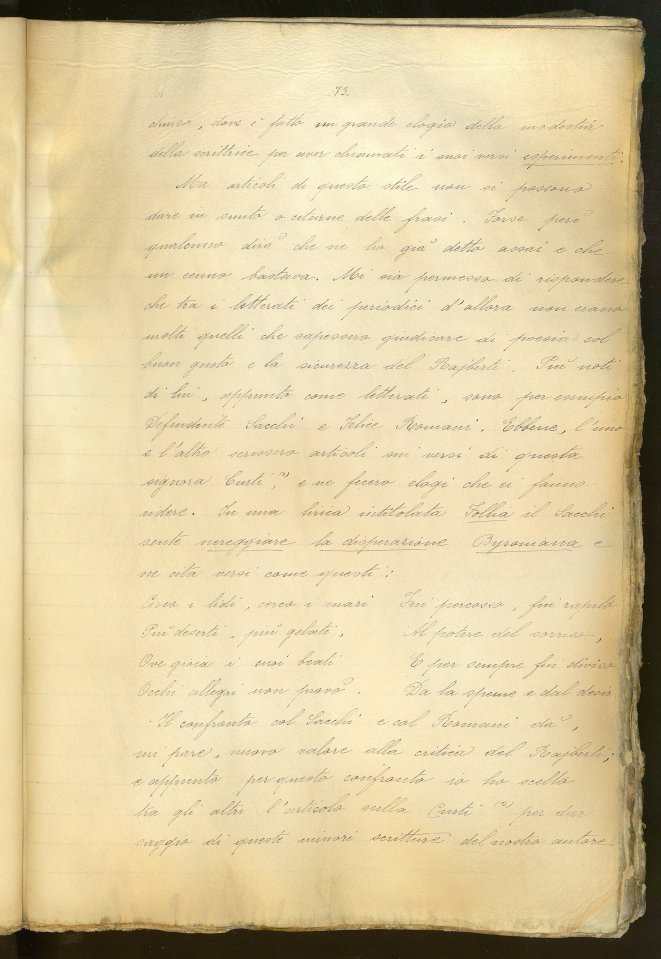 73.
denza, dove è fatto un grande elogio della modestia
della scrittrice per aver chiamati i suoi versi esperimenti.
Ma articoli di questo stile non si possono
dare in sunto o citarne delle frasi. Forse però
qualcuno dirà che ne ho già detto assai e che
un cenno bastava. Mi sia permesso di rispondere
che tra i letterati dei periodici d'allora non erano
molti quelli che sapessero giudicare di poesia col
buon gusto e la sicurezza del Rajberti. Più noti
di lui, appunto come letterati, sono per esempio
Defendente Sacchi e Felice Romani. Ebbene, l'uno
e l'altro scrissero articoli sui versi di questa
signora Curti,(1) e ne fecero elogi che ci fanno
ridere. In una lirica intitolata Follia il Sacchi
sente nereggiare la disperazione Byroniana e
ne cita versi come questi:
Cerco i lidi, cerco i mari Fui percosso, fui rapito
Più deserti, più gelati, Al potere del sorriso,
Ove gioia i suoi beati E per sempre fui diviso
Occhi allegri non provò. Da la speme e dal desir
Il confronto col Sacchi e col Romani dà,
mi pare, nuovo valore alla critica del Rajberti;
e appunto per questo confronto io ho scelto
tra gli altri l'articolo sulla Curti (2) per dar
saggio di queste minori scritture del nostro autore.